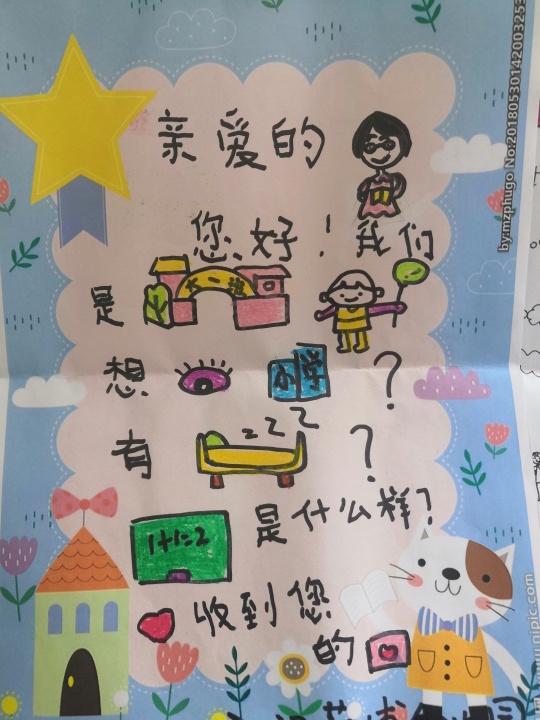 亲爱的
您好！我们
是大一班
想小学？
有zzz？
1+1=2是什么样？
收到您
的
by:mzphugo No:20180530142003253
www.nipic.com